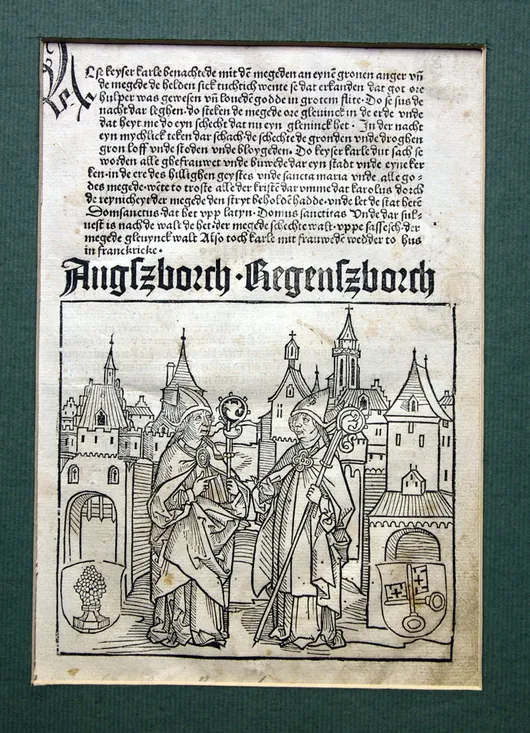 Lse keyser karle benachtede mit dē megeden an eynē gronen anger vn̄
de megede de helden sick tuchtich wente se dat erkanden dat got ore
hulper was gewesen vn̄ louede godde in grotem flite· Do se sus de
nacht dar leghen· do steken de megede ore gleuinck in de erde vnde
dat heyt me do eyn schecht dat nu eyn gleninck het · In der nacht
eyn mychlick teken dar schach· de schechte de gronden vnde droghen
gron loff vnde stoden vnde bloygeden· Do keyser karle dut sach se
worden alle ghefrauwet vnde buwede dar eyn stadt vnde eyne ker
ken· in de ere des hillighen geystes vnde sancta maria vnde alle go⸗
des megede· wēte to troste alle der kristē dar vmme dat karolus dorch
de reynicheyt der megede den stryt beholdē hadde· vnde let de stat hetē
Domsanctus· dat het vpp latyn· Domus sanctitas Vnde dar sul⸗
uest is nach de walt de het· der megede schechte walt· vppe sassesch· der
megede gleuynck walt Also toch karle mit frauwede wedder to hus
in franckricke ·
Augszborch · Regenszborch